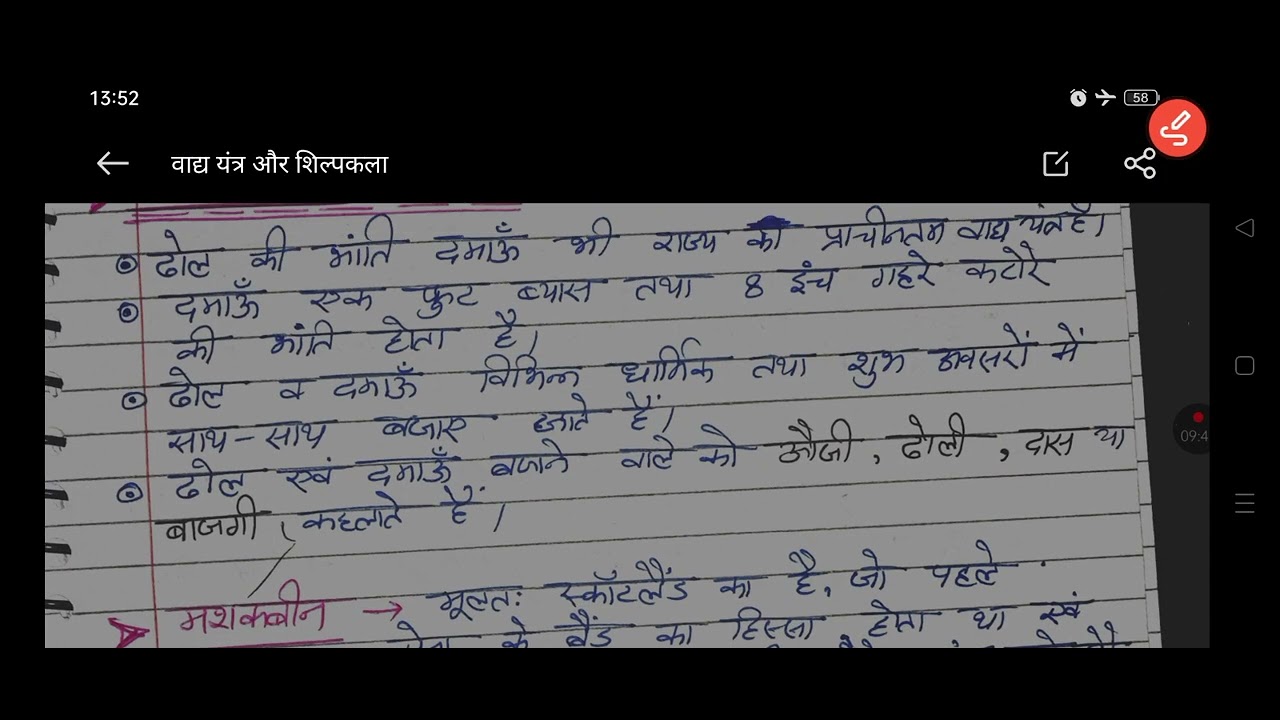 13:52
58
वाद्य यंत्र और शिल्पकला
ढोल की भांति दमाऊँ भी राज्य का प्राचीनतम वाद्य यंत्र है।
दमाऊँ एक फुट व्यास तथा 8 इंच गहरे कटोरे
की भांति होता है।
ढोल व दमाऊँ विभिन्न धार्मिक तथा शुभ अवसरों में
साथ-साथ बजाए जाते हैं।
ढोल एवं दमाऊँ बजाने वाले को औजी, ढोली, दास या
बाजगी कहलाते हैं।
09:4
मशकबीन → मूलतः स्कॉटलैंड का है, जो पहले
के बैंड का हिस्सा होता था एवं